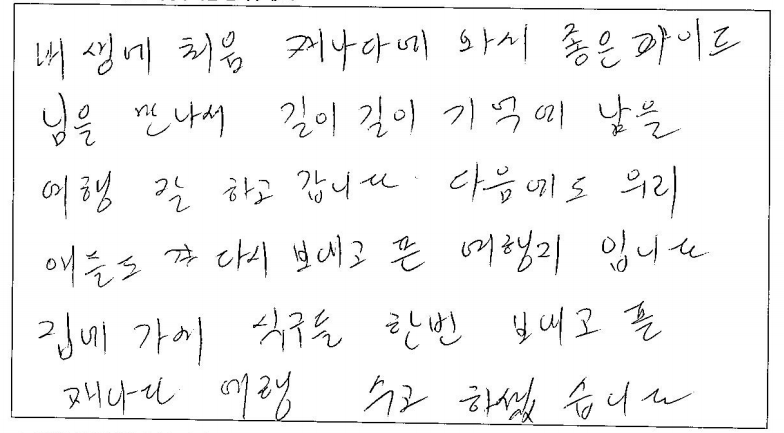 내 생에 처음 캐나다에 와서 좋은 가이드
님을 만나서 길이 길이 기억에 남을
여행 잘 하고 갑니다. 다음에도 우리
애들도 꼭 다시 보내고 픈 여행지 입니다
집에 가서 식구들 한번 보내고 픈
캐나다 여행 수고 하셨 습니다